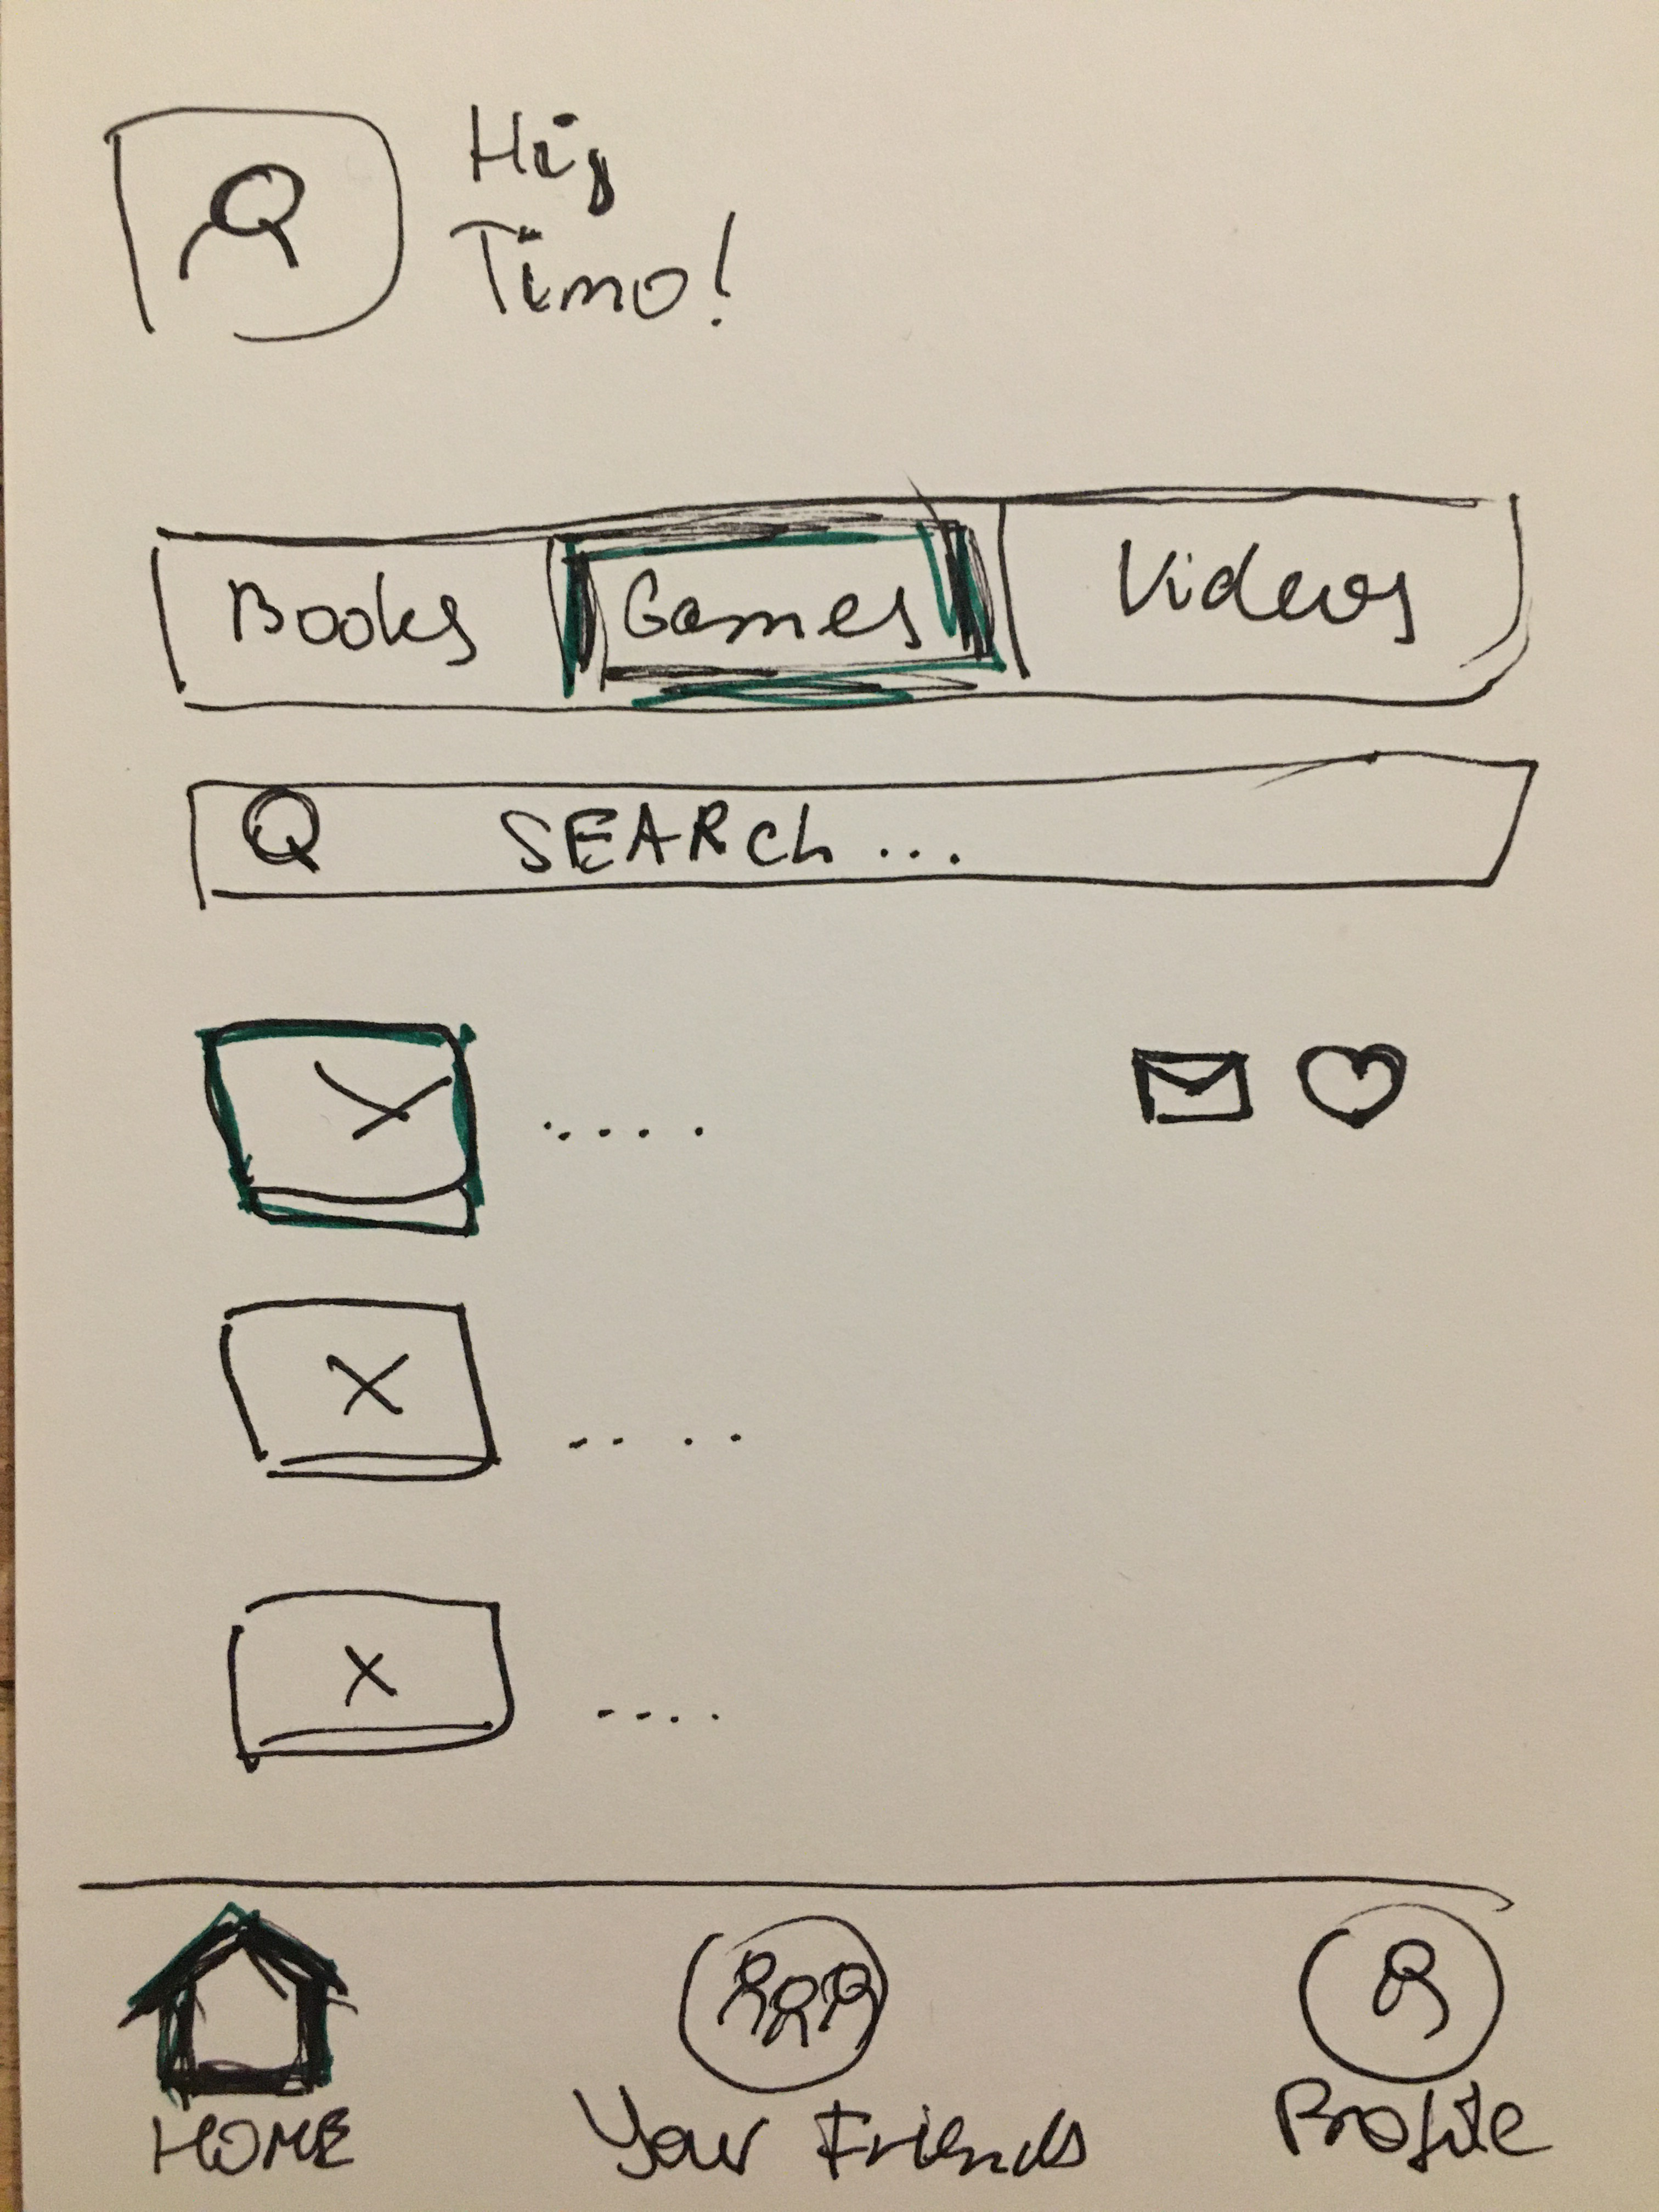 Hi,
Timo!
Books Games Videos
SEARCh...
.....
....
....
HOME Your Friends Profile